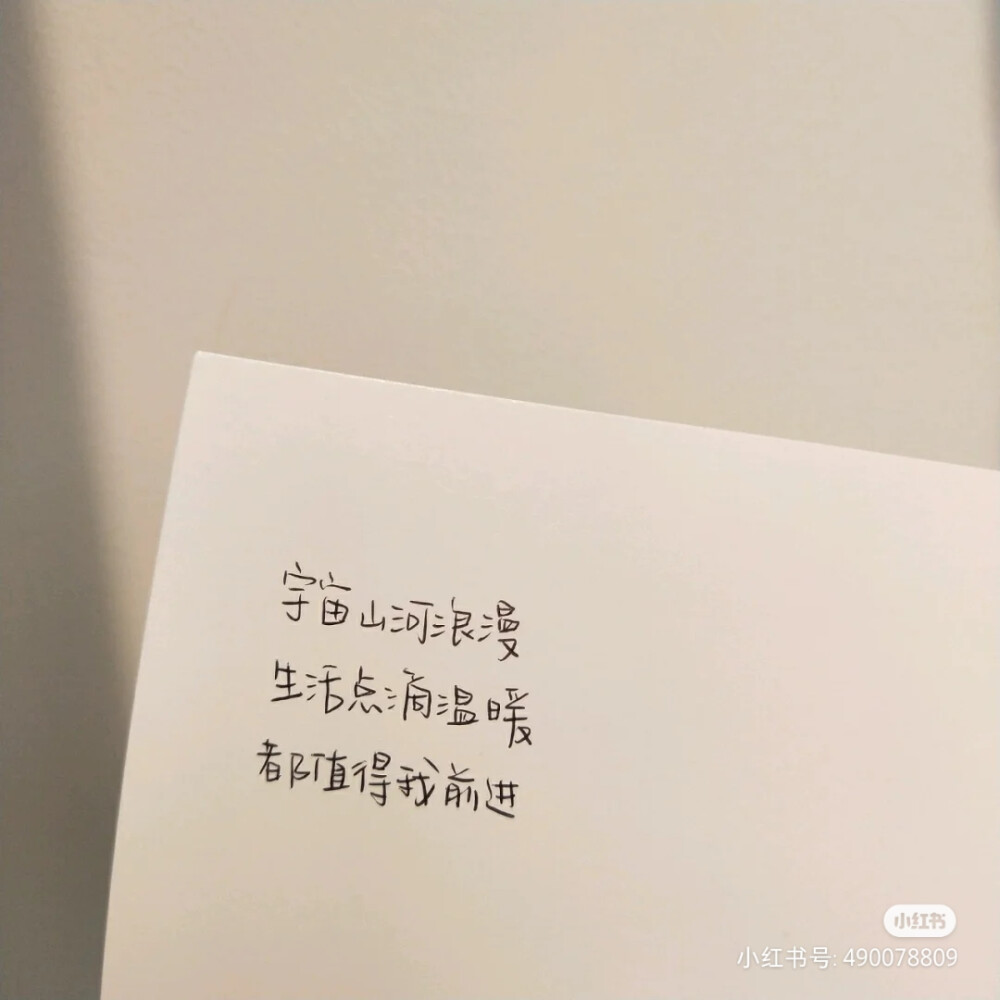 宇宙山河浪漫
生活点滴温暖
都值得我前进
小红书
小红书号: 490078809